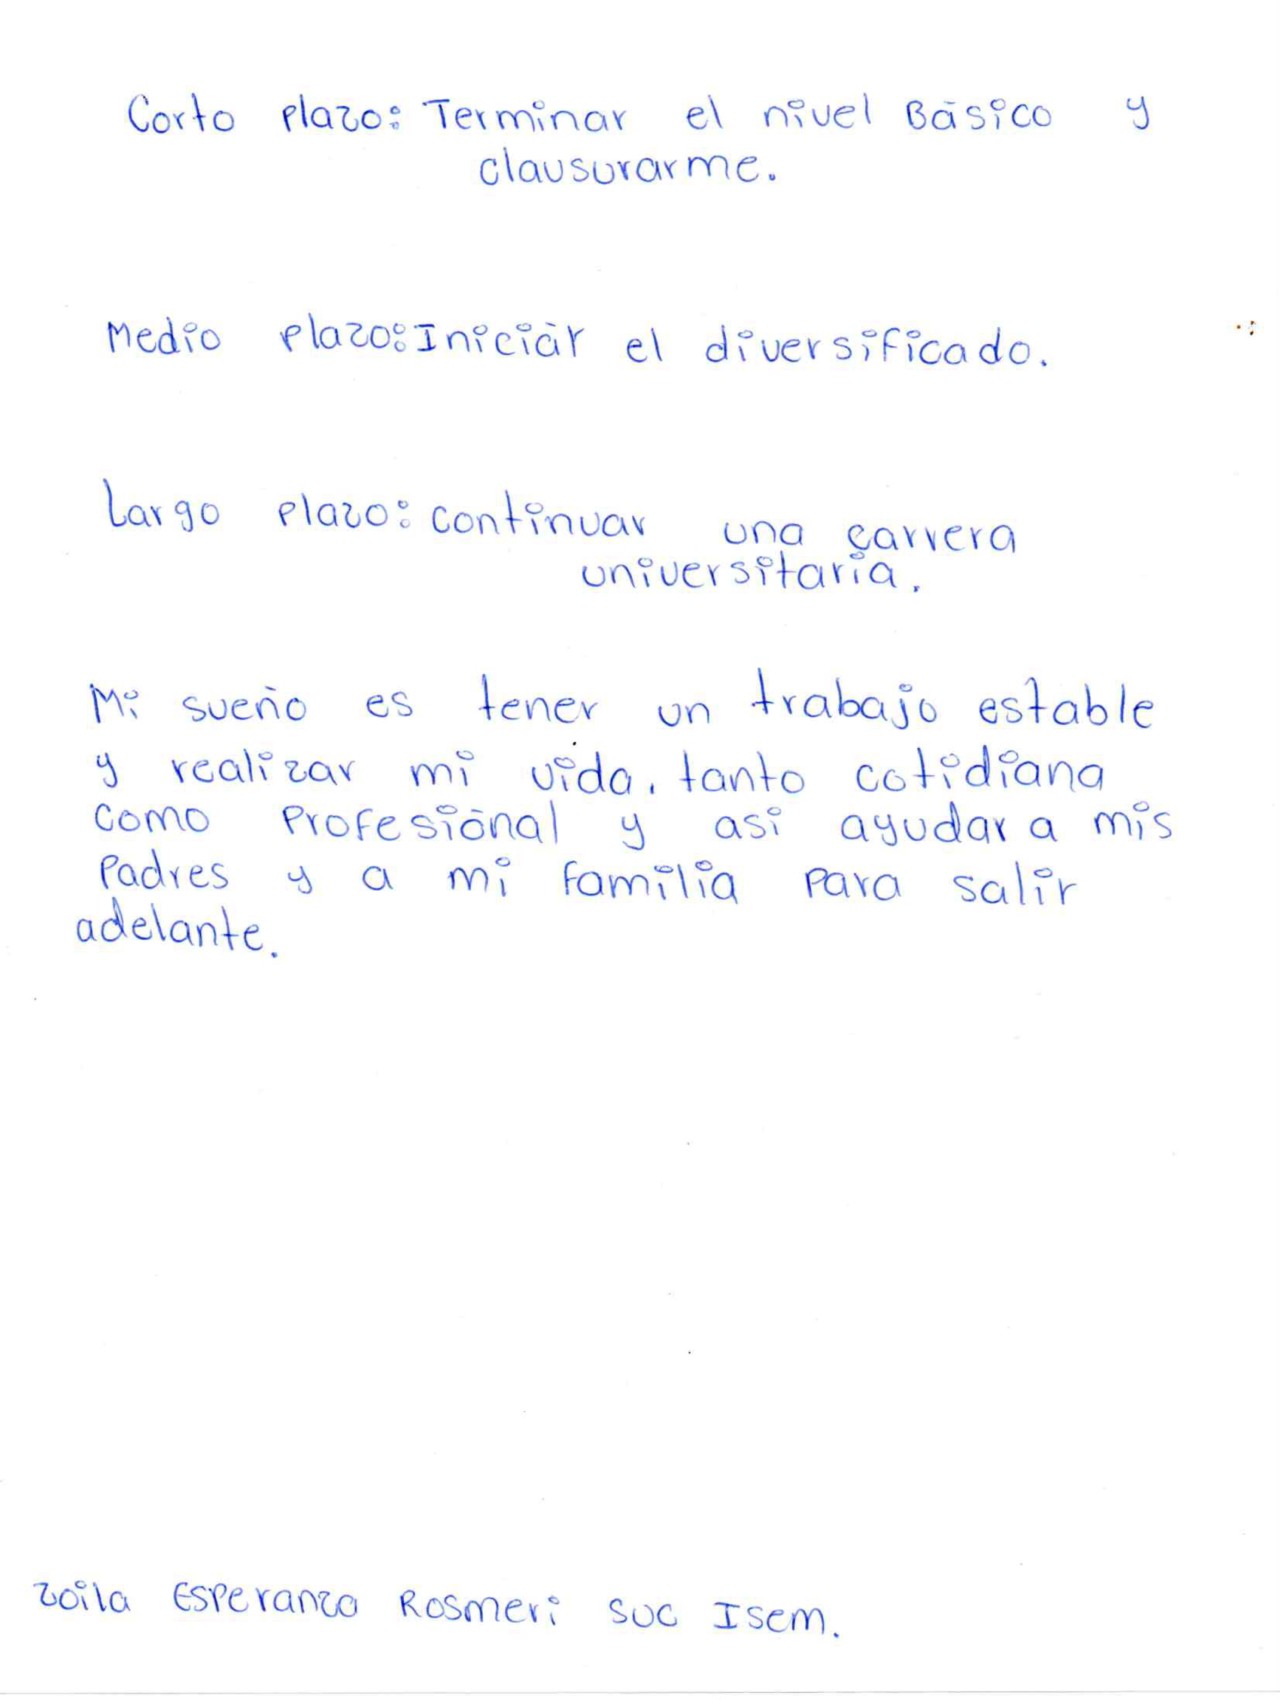 Corto plazo: Terminar el nivel Básico y
clausurarme.
Medio plazo: Iniciár el diversificado.
Largo plazo: continuar una carrera
universitaria.
Mi sueño es tener un trabajo estable
y realizar mi vida. tanto cotidiana
como Profesiónal y asi ayudar a mis
Padres y a mi familia para salir
adelante.
Zoila Esperanza Rosmeri Suc Isem.